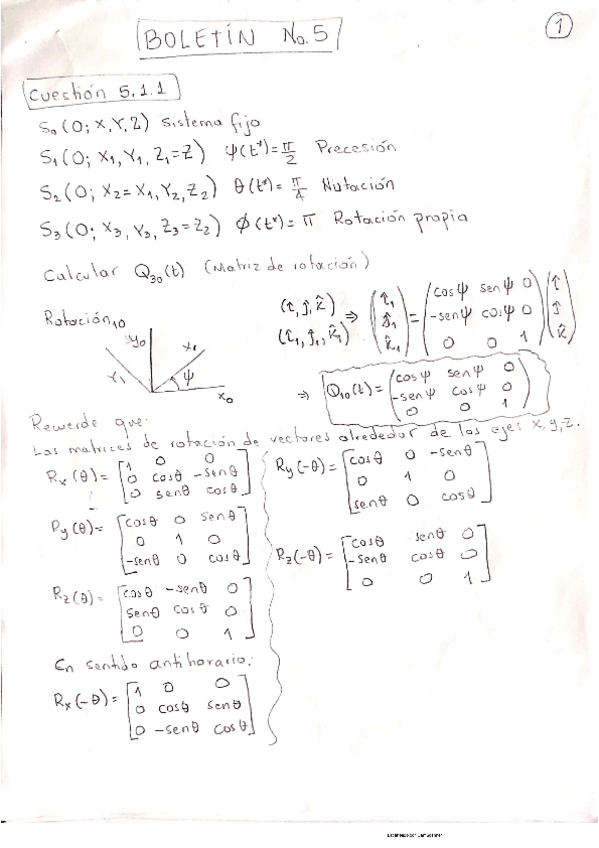 BOLETÍN No.5
1
Cuestión 5.1.1
S₀ (O; X,Y,Z) Sistema fijo
S₁ (O; X₁,Y₁,Z₁=Z) Ψ(t*)=π/2 Precesión
S₂ (O; X₂=X₁,Y₂,Z₂) θ(t*)=π/4 Nutación
S₃ (O; X₃,Y₃,Z₃=Z₂) ϕ(t*)=π Rotación propia
Calcular Q₃₀(t) (Matriz de rotación)
Rotación₁₀
y₀ x₁ y₁ Ψ x₀
(î, ĵ, k̂)
(î₁, ĵ₁, k̂₁) ⇒ (î₁ ĵ₁ k̂₁) = (cosΨ senΨ 0 -senΨ cosΨ 0 0 0 1) (î ĵ k̂)
⇒ Q₁₀(t) = (cosΨ senΨ 0 -senΨ cosΨ 0 0 0 1)
Recuerde que:
Las matrices de rotación de vectores alrededor de los ejes x,y,z.
Rx(θ)= [1 0 0 0 cosθ -senθ 0 senθ cosθ]
Ry(θ)= [cosθ 0 senθ 0 1 0 -senθ 0 cosθ]
Rz(θ)= [cosθ -senθ 0 senθ cosθ 0 0 0 1]
En sentido antihorario:
Rx(-θ)= [1 0 0 0 cosθ senθ 0 -senθ cosθ]
Ry(-θ)= [cosθ 0 -senθ 0 1 0 senθ 0 cosθ]
Rz(-θ)= [cosθ senθ 0 -senθ cosθ 0 0 0 1]
Escaneado con CamScanner